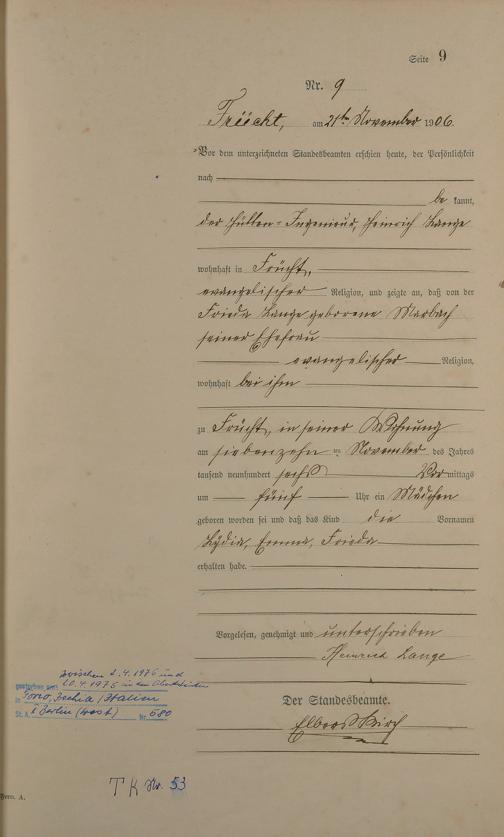 Seite 9
Nr. 9
Früecht, am 21ten November 1906.
Vor dem unterzeichneten Standesbeamten erschien heute, der Persönlichkeit
nach
be kannt,
der Hütten-Ingenieur, Heinrich Lange
wohnhaft in Frücht,
evangelischer Religion, und zeigte an, daß von der
Frieda Lange geborene Marbach
seiner Ehefrau
evangelischer Religion,
wohnhaft bei ihm
zu Frücht, in seiner Wohnung
am siebenzehn ten November des Jahres
tausend neunhundert sechs Vor mittags
um fünf Uhr ein Mädchen
geboren worden sei und daß das Kind die Vornamen
Lydia, Emma, Frieda
erhalten habe.
Vorgelesen, genehmigt und unterschrieben
Heinrich Lange
Der Standesbeamte.
Elbert Kirch
zwischen 2.4.1976 und
gestorben am 20.4.1976 in den
in Forio, Ischia/Italien
St. A. I Berlin (West) Nr. 680
TK Nr. 53
Form. A.